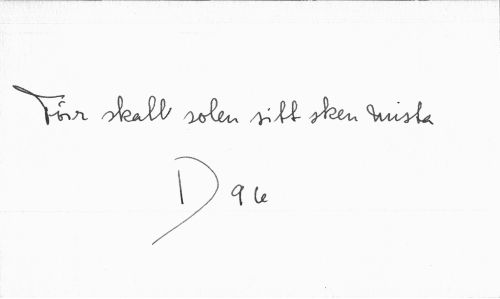 Förr skall solen sitt sken mista
D 96